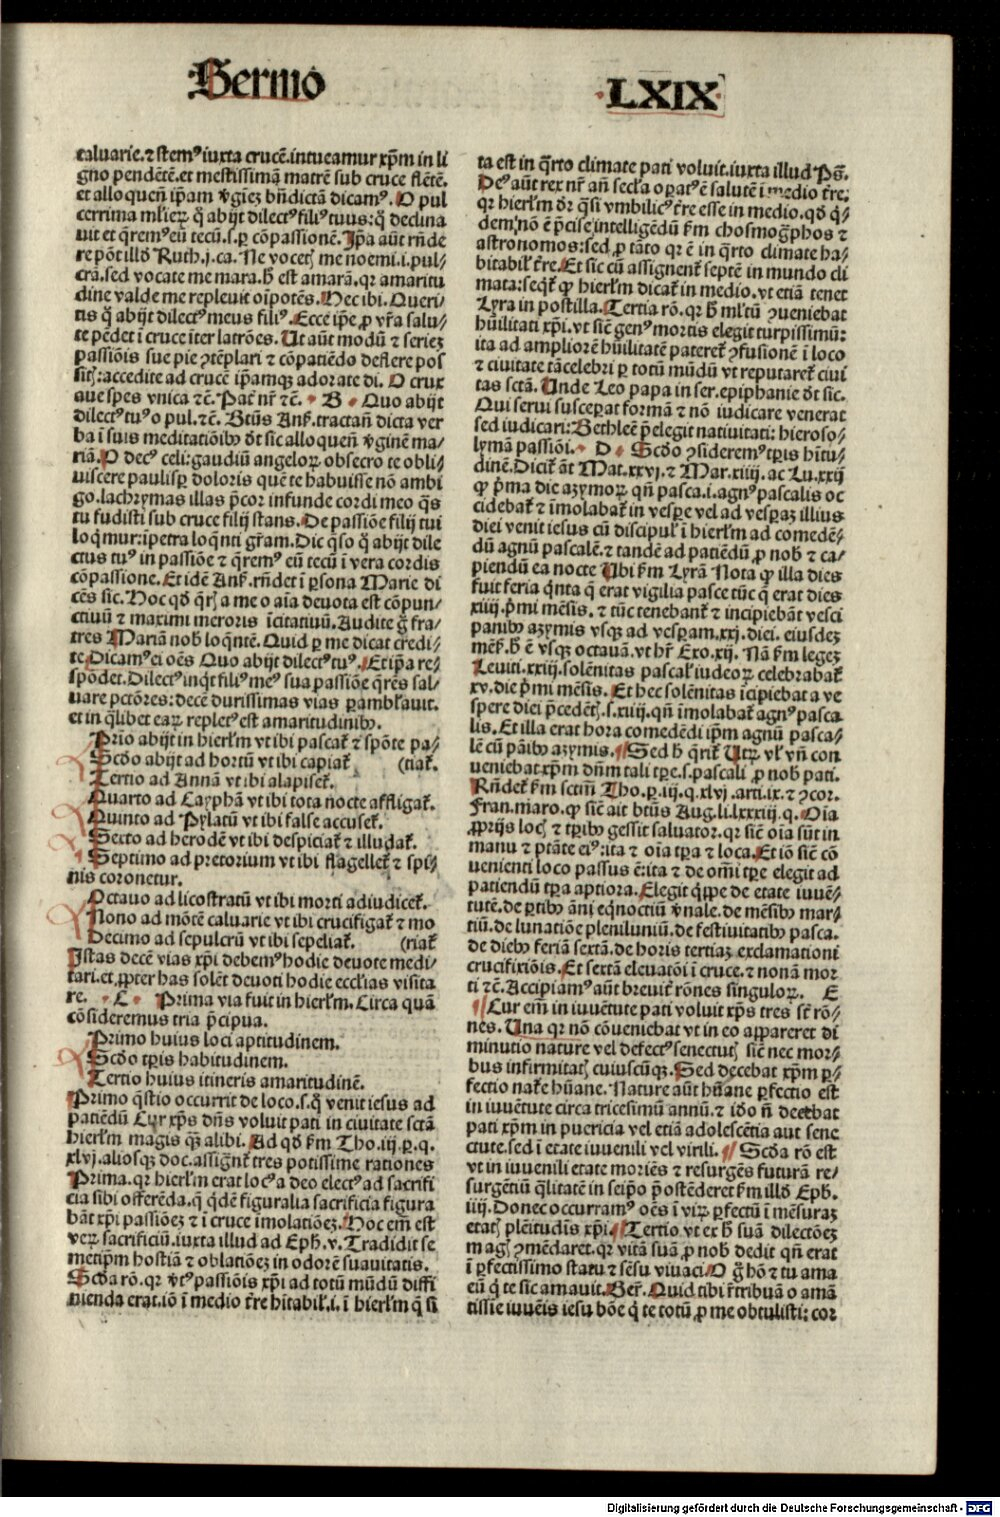 Sermo
LXIX
caluarie.⁊ stemꝰ iuxta crucē.intueamur xp̄m in li
gno pendētē.et mestissimā matrē sub cruce flētē.
et alloquen̄ ip̄am v̄gīez bn̄dictā dicamꝰ. O pul
cerrima ml̓ieꝝ q̄ abijt dilectꝰ filiꝰ tuus:q̄ declina
uit et q̄remꝰ eū tecū.s.ꝑ cōpassionē. Ip̄a aūt rn̄de
re pōt illd̓ Ruth.j.ca. Ne vocetꝭ me noemi.i.pul⸗
crā.sed vocate me mara.h̓ est amarā.qꝛ amaritu
dine valde me repleuit oīpotēs. Hec ibi. Queri⸗
tis q̄ abijt dilectꝰ meus filiꝰ. Ecce ip̄e ꝓ vr̄a salu⸗
te pēdet ī cruce īter latrōes. Ut aūt modū ⁊ seriez
passiōis sue pie ꝯtēplari ⁊ cōpatiēdo deflere pos
sitꝭ:accedite ad crucē ip̄amqꝫ adorate di. O crux
aue spes vnica ⁊c̄. Pat̄ nr̄ ⁊c̄. B Quo abijt
dilectꝰ tuꝰ o pul.⁊c̄. Btūs Anß. tractan̄ dicta ver
ba ī suis meditatiōibꝰ d̓t sic alloquen̄ v̄ginē ma⸗
riā. O decꝰ celi:gaudiū angeloꝝ obsecro te obli⸗
uiscere paulisꝑ doloris quē te habuisse nō ambi
go.lachrymas illas p̄cor infunde cordi meo q̄s
tu fudisti sub cruce filij stans. De passiōe filij tui
loq̄mur:īpetra loq̄nti gr̄am. Dic q̄so q̄ abijt dile
ctus tuꝰ in passiōe ⁊ q̄remꝰ eū tecū ī vera cordis
cōpassione. Et idē Anß. rn̄det ī ꝑsona Marie di
cēs sic. Hoc qd̓ q̄rꝭ a me o aīa deuota est cōpun⸗
ctiuū ⁊ maximi meroris īcitatiuū. Audite g̊ fra⸗
tres Mariā nob̓ loq̄ntē. Quid ꝑ me dicat credi⸗
te. Dicamꝰ ei oēs Quo abijt dilectꝰ tuꝰ. Et ip̄a re⸗
spōdet. Dilectꝰ inq̄t filiꝰ meꝰ sua passiōe q̄rēs sal⸗
uare pctōres:decē durissimas vias ꝑambl̓auit.
et in q̄libet eaꝝ repletꝰ est amaritudinibꝰ.
Prīo abijt in hierl̓m vt ibi pascat̄ ⁊ spōte pa⸗
Scd̓o abijt ad hortū vt ibi capiat̄ (tiat̄.
Tertio ad Annā vt ibi alapiset̄.
Quarto ad Caypħā vt ibi tota nocte affligat̄.
Quinto ad Pylatū vt ibi false accuset̄.
Sexto ad herodē vt ibi despiciat̄ ⁊ illudat̄.
Septimo ad pretorium vt ibi flagellet̄ ⁊ spi⸗
nis coronetur.
Octauo ad licostratū vt ibi morti adiudicet̄.
Nono ad mōtē caluarie vt ibi crucifigat̄ ⁊ mo
Decimo ad sepulcrū vt ibi sepeliat̄. (riat̄
Istas decē vias xp̄i debemꝰ hodie deuote medi⸗
tari.et ꝓpter has solēt deuoti hodie eccl̓ias visita
re. C Prima via fuit in hierl̓m. Circa quā
cōsideremus tria p̄cipua.
Primo huius loci aptitudinem.
Scd̓o tꝑis habitudinem.
Tertio huius itineris amaritudinē.
Primo q̄stio occurrit de loco.s.q̄ venit iesus ad
patiēdū Cur xp̄s dn̄s voluit pati in ciuitate sctā
hierl̓m magis q̄ꝫ alibi. Ad qd̓ ẜm Tho.iij.ꝑ.q.
xlvj.aliosqꝫ doc.assign̄t̄ tres potissime rationes
Prima.qꝛ hierl̓m erat locꝰ a deo electꝰ ad sacrifi
cia sibi offerēda.q̄ q̄dē figuralia sacrificia figura
bāt xp̄i passiōez ⁊ ī cruce īmolatiōez. Hoc em̄ est
veꝝ sacrificiū.iuxta illud ad Eph̓.v. Tradidit se
metip̄m hostiā ⁊ oblatiōez in odorē suauitatis.
Scd̓a rō.qꝛ v̄tꝰ passiōis xp̄i ad totū mūdū diffī
nienda erat.iō ī medio tr̄e hītabil̓.i.ī hierl̓m q̄ si
ta est in q̄rto climate pati voluit.iuxta illud Pß.
Deꝰ aūt rex nr̄ an̄ secl̓a oꝑatꝰ ē salutē ī medio tr̄e:
qꝛ hierl̓m d̓r q̄si vmbilicꝰ tr̄e esse in medio.qd̓ q̄⸗
dem̓ nō ē p̄cise intelligēdū ẜm chosmog̈phos ⁊
astronomos:sed ꝓ tāto qꝛ ē in q̄rto climate ha⸗
bitabil̓ tr̄e. Et sic cū assignent̄ septē in mundo cli
mata:seqt̄ ꝙ hierl̓m dicat̄ in medio.vt etiā tenet
Lyra in postilla. Tertia rō.qꝛ h̓ ml̓tū ꝯueniebat
hūilitati xp̄i.vt sic̄ genꝰ mortis elegit turpissimū:
ita ad ampliorē hūilitatē pateret̄ ꝯfusionē ī loco
⁊ ciuitate tā celebri ꝑ totū mūdū vt reputaret̄ ciui
tas sctā. Unde Leo papa in ser.epiphanie d̓t sic.
Qui serui susceꝑat formā ⁊ nō iudicare venerat
sed iudicari:Bethleē p̄elegit natiuitati:hieroso⸗
lymā passiōi. D Scd̓o ꝯsideremꝰ tꝑis hītu⸗
dinē. Dicit̄ āt Mat.xxvj.⁊ Mar.xiiij.ac Lu.xxij
ꝙ p̄ma die azymoꝝ qn̄ pasca.i.agnꝰ pascalis oc
cidebat̄ ⁊ īmolabat̄ in vesꝑe vel ad vesꝑaꝫ illius
diei venit iesus cū discipul̓ ī hierl̓m ad comedē⸗
dū agnū pascalē.⁊ tandē ad patiēdū ꝓ nob̓ ⁊ ca⸗
piendū ea nocte Ubi ẜm Lyrā Nota ꝙ illa dies
fuit feria q̄nta q̄ erat vigilia pasce tūc q̄ erat dies
xiiij.p̄mi mēsis.⁊ tūc tenebant̄ ⁊ incipiebāt vesci
panibꝰ azymis vsqꝫ ad vesꝑam.xxj.diei.eiusdeꝫ
mēß.h̓ ē vsqꝫ octauā.vt hr̄ Exo.xij. Nā ẜm legeꝫ
Leuiti.xxiij.solēnitas pascal̓ iudeoꝝ celebrabat̄
xv.die p̄mi mēsis. Et hec solēnitas īcipiebat a ve
spere diei p̄cedētꝭ.s.xiiij.qn̄ īmolabat̄ agnꝰ pasca
lis. Et illa erat hora comedēdi ip̄m agnū pasca⸗
lē cū pāibꝰ azymis. Sed h̓ q̄rit̄ Utꝝ vl̓ vn̄ con
ueniebat xp̄m dn̄m tali tꝑe.s.pascali ꝓ nob̓ pati.
Rn̄det̄ ẜm sctm̄ Tho.ꝑ.iij.q.xlvj.arti.ix.⁊ ꝯcor.
Fran.maro.ꝙ sic̄ ait btūs Aug.li.lxxxiij.q. Oīa
ꝓprijs locꝭ ⁊ tꝑibꝰ gessit saluator.qꝛ sic̄ oīa sūt in
manu ⁊ ptāte eiꝰ:ita ⁊ oīa tꝑa ⁊ loca. Et iō sic̄ cō
uenienti loco passus ē:ita ⁊ de om̄i tꝑe elegit ad
patiendū tꝑa aptiora. Elegit q̄ppe de etate iuuē⸗
tutē.de ꝑtibꝰ āni eq̄noctiū v̄nale.de mēsibꝰ mar⸗
tiū.de lunatiōe pleniluniū.de festiuitatibꝰ pasca.
de diebꝰ feriā sextā.de horis tertiaꝫ exclamationi
crucifixiōis. Et sextā eleuatōi ī cruce.⁊ nonā mor
ti ⁊c̄. Accipiamꝰ aūt breuit̄ rōnes singuloꝝ. E
Cur em̄ in iuuētute pati voluit xp̄s tres st̄ rō⸗
nes. Una qꝛ nō cōueniebat vt in eo appareret di
minutio nature vel defectꝰ senectutꝭ sic̄ nec mor⸗
bus infirmitatꝭ cuiuscūqꝫ. Sed decebat xp̄m ꝑ⸗
fectio nat̄e hūane. Nature aūt hūane ꝑfectio est
in iuuētute circa tricesimū annū.⁊ iд̓o n̄ decebat
pati xp̄m in puericia vel etiā adolescētia aut sene
ctute.sed ī etate iuuenili vel virili. Scd̓a rō est
vt in iuuenili etate moriēs ⁊ resurgēs futurā re⸗
surgētiū q̄litatē in seip̄o p̄ostēderet ẜm illd̓ Eph̓.
iiij. Donec occurramꝰ oēs ī viꝝ ꝑfectū ī mēsuraꝫ
etatꝭ plēitudīs xp̄i. Tertio vt ex h̓ suā dilectōeꝫ
magꝭ ꝯmēdaret.qꝛ vitā suā ꝓ nob̓ dedit qn̄ erat
ī ꝑfectissimo statu ⁊ sēsu viuaci. O g̊ hō ⁊ tu ama
eū q̇ te sic amauit. Ber̄. Quid tibi r̄tribuā o amā
tissīe iuuēis iesu bōe q̇ te totū ꝓ me obtulisti:cor
Digitalisierung gefördert durch die Deutsche Forschungsgemeinschaft - DFG